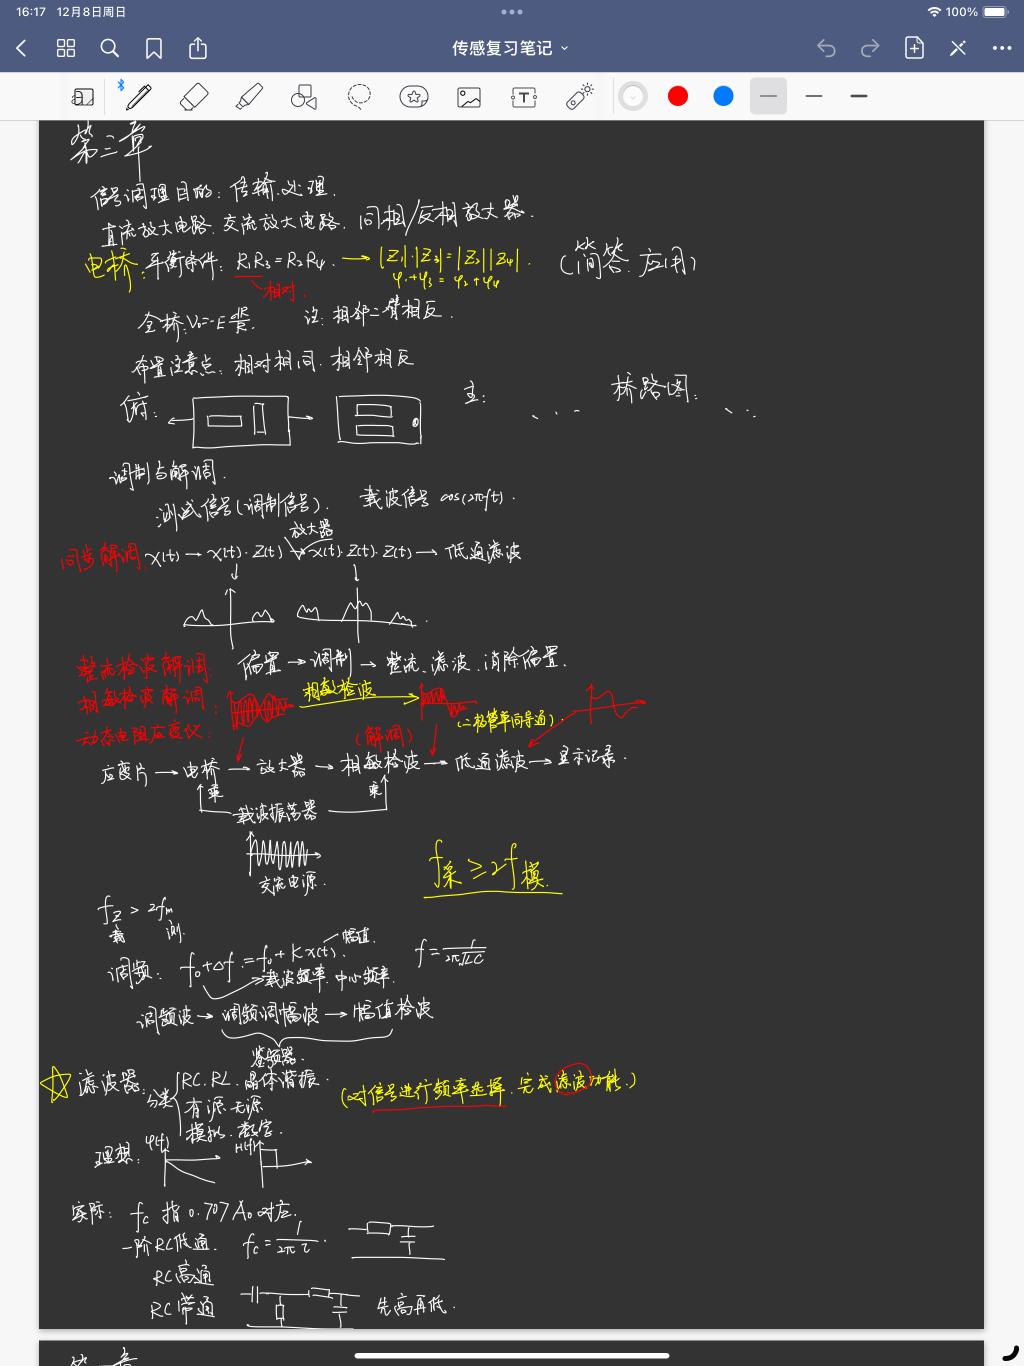 16:17 12月8日周日
100%
传感复习笔记
第三章
信号调理目的：传输.处理.
直流放大电路.交流放大电路.同相/反相放大器.
电桥：平衡条件：R₁R₃=R₂R₄. → |Z₁|·|Z₃|=|Z₂||Z₄|. (简答.应用)
φ₁+φ₃=φ₂+φ₄
相对.
全桥：V₀=-E 注：相邻二臂相反.
布置注意点：相对相同.相邻相反
俯： 主： 桥路图：
调制与解调.
测试信号(调制信号). 载波信号 cos(2πft).
放大器
同步解调：x(t) → x(t)·Z(t) → x(t)·Z(t)·Z(t) → 低通滤波
整流检波解调： 偏置→调制→整流.滤波.消除偏置.
相敏检波解调： 相敏检波
(二极管单向导通).
动态电阻应变仪： (解调)
应变片→电桥→放大器→相敏检波→低通滤波→显示记录.
乘 乘
载波振荡器
交流电源.
f采≥2f模.
fz > 2fm
载 测.
幅值.
调频： f₀+Δf.=f₀+Kx(t). f=1/2π√LC
载波频率.中心频率.
调频波→调频调幅波→幅值检波
鉴频器.
☆滤波器：分类 RC.RL.晶体谐振. (对信号进行频率选择.完成滤波功能.)
有源.无源
模拟.数字.
理想： φ(f) H(f)
实际： fc 指 0.707A₀对应.
一阶RC低通. fc=1/2πτ.
RC高通
RC带通 先高再低.